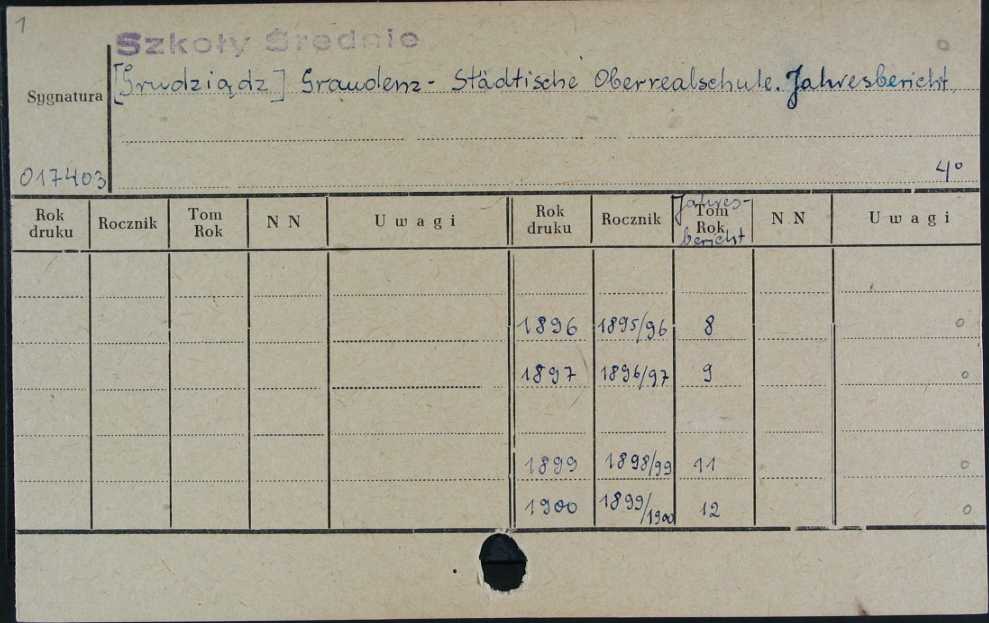 1
Szkoły Średnie
[Grudziądz] Graudenz - Städtische Oberrealschule. Jahresbericht.
Sygnatura
017403
4°
Rok druku Rocznik Tom Rok NN Uwagi Rok druku Rocznik Tom Rok Jahresbericht NN Uwagi
1896 1895/96 8 o
1897 1896/97 9 o
1899 1898/99 11 o
1900 1899/1900 12 o